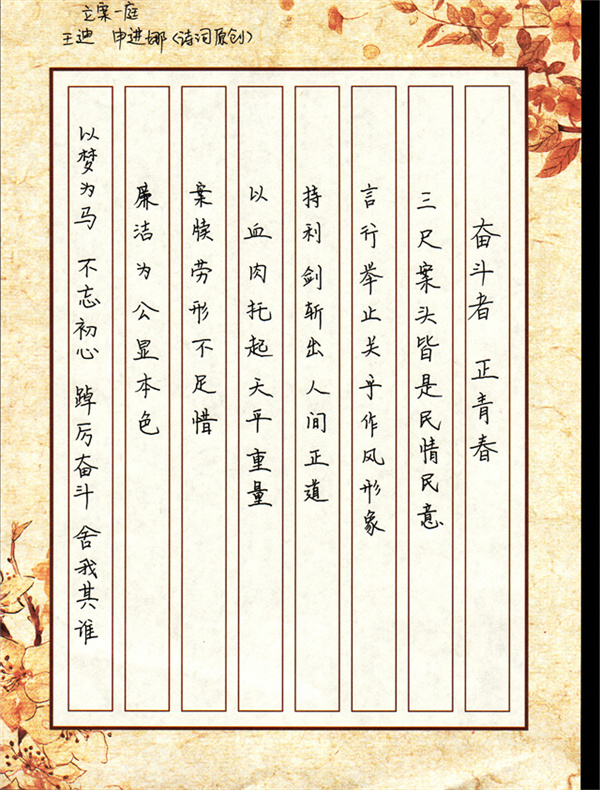 立案一庭
王迪 申进娜（诗词原创）
奋斗者 正青春
三尺案头皆是民情民意
言行举止关乎作风形象
持利剑斩出人间正道
以血肉托起天平重量
案牍劳形不足惜
廉洁为公显本色
以梦为马 不忘初心 踔厉奋斗 舍我其谁